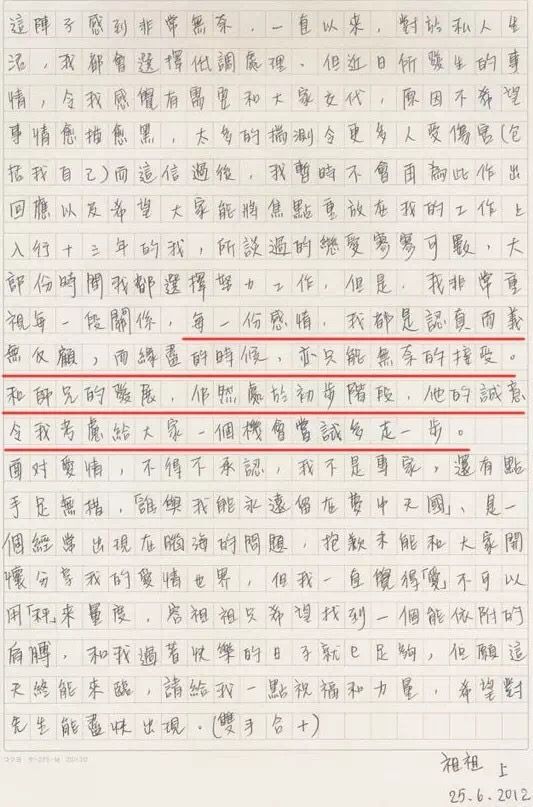 這陣子感到非常無奈．一直以來，對於私人生
活，我都會選擇低調處理．但近日所發生的事
情，令我感覺有需要和大家交代，原因不希望
事情愈描愈黑，太多的揣測令更多人受傷害(包
括我自己)而這信過後，我暫時不會再為此作出
回應以及希望大家能將焦點重放在我的工作上
入行十三年的我，所談過的戀愛寥寥可數，大
部份時間我都選擇努力工作，但是，我非常重
視每一段關係，每一份感情，我都是認真而義
無反顧，而緣盡的時候，亦只能無奈的接受。
和師兄的發展，仍然處於初步階段，他的誠意
令我考慮給大家一個機會嘗試多走一步。
面對愛情，不得不承認，我不是專家，還有點
手足無措，「誰與我能永遠留在夢中天國」，是一
個經常出現在腦海的問題，抱歉未能和大家開
懷分享我的愛情世界，但我一直覺得「愛」不可以
用「秤」來量度，容祖祖只希望找到一個能依附的
肩膊，和我過著快樂的日子就已足夠，但願這
天終能來臨，請給我一點祝福和力量，希望對
先生能盡快出現．(雙手合十)
祖祖 上
25.6.2012